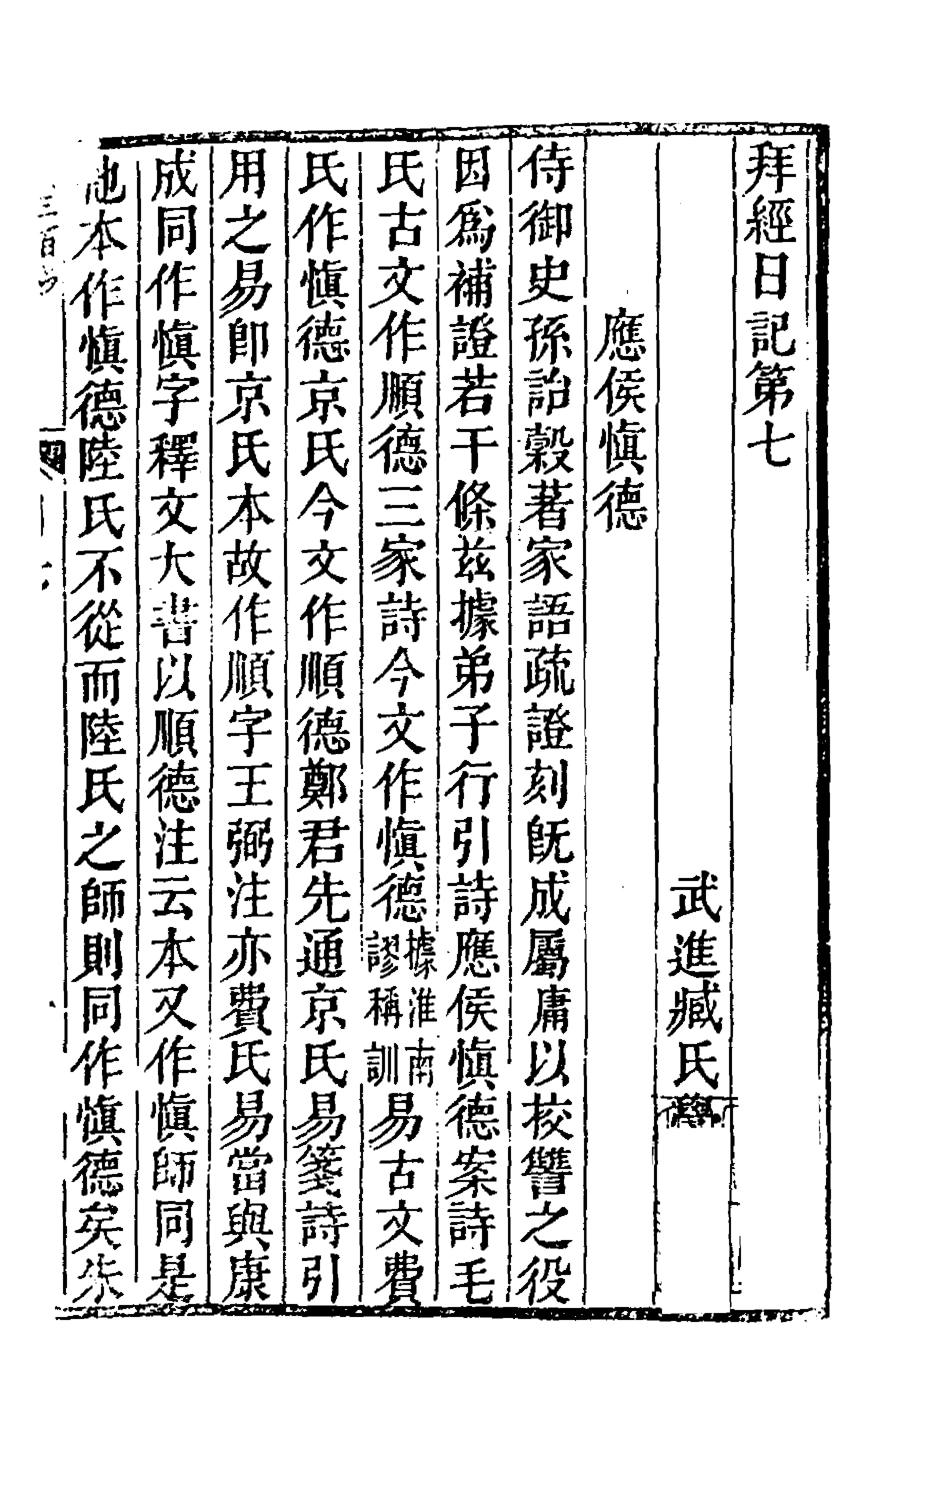 拜經日記第七
武進臧氏學
應侯慎德
侍御史孫詒穀著家語疏證刻旣成屬庸以校讐之役
因爲補證若干條茲據弟子行引詩應侯慎德案詩毛
氏古文作順德三家詩今文作慎德據淮南謬稱訓易古文費
氏作慎德京氏今文作順德鄭君先通京氏易箋詩引
用之易卽京氏本故作順字王弼注亦費氏易當與康
成同作慎字釋文大書以順德注云本又作慎師同是
他本作慎德陸氏不從而陸氏之師則同作慎德矣朱